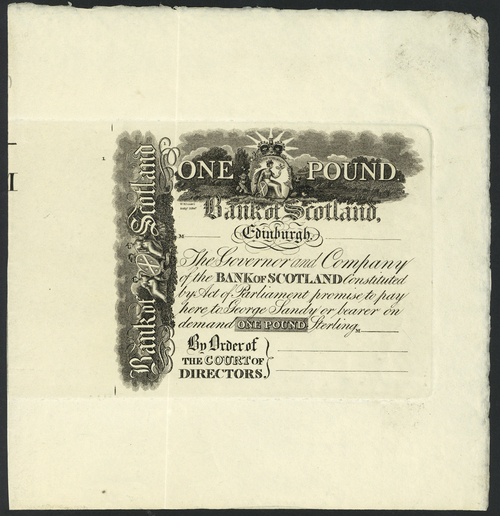 ONE POUND
Bank of Scotland,
Edinburgh,
The Governor and Company
of the BANK OF SCOTLAND Constituted
by Act of Parliament promise to pay
here to George Sandy or bearer on
demand ONE POUND Sterling
By Order of
THE COURT OF
DIRECTORS.
Bank of Scotland